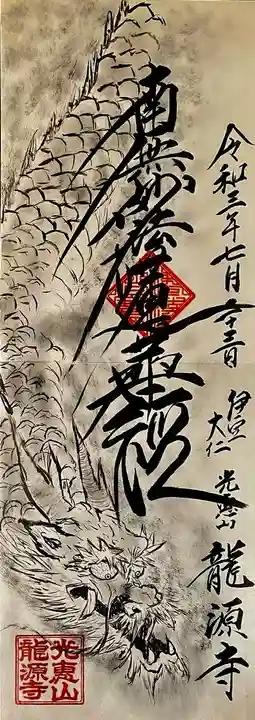 令和三年七月二十三日
伊豆
大仁
光恵山
龍源寺
南無妙法蓮華経
光恵山
龍源寺